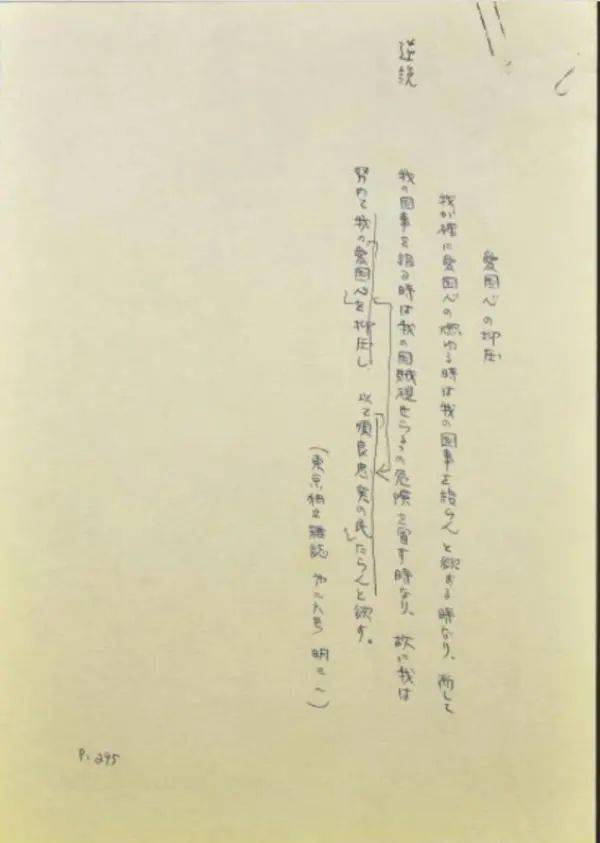 愛国心の抑圧
我が裡に愛国心の燃ゆる時は我の国事を語らんと欲する時なり、而して
我の国事を語る時は我の国賊視せらるゝの危険を冒す時なり、故に我は
努めて我の愛国心を抑圧し、以て順良忠実の民たらんと欲す。
(東京独立雑誌 号 明三 )
逆説
P. 295